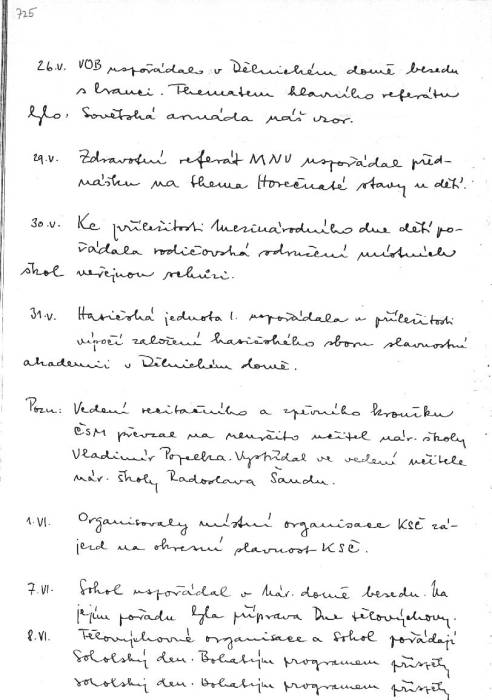 725
26.V. VOB uspořádalo v Dělnickém domě besedu
s branci. Thematem hlavního referátu
bylo: Sovětská armáda náš vzor.
29.V. Zdravotní referát MNV uspořádal před-
nášku na thema Horečnaté stavy u dětí.
30.V. Ke příležitosti Mezinárodního dne dětí po-
řádala rodičovská sdružení místních
škol veřejnou schůzi.
31.V. Hasičská jednota I. uspořádala u příležitosti
výročí založení hasičského sboru slavnostní
akademii v Dělnickém domě.
Pozn: Vedení recitačního a zpěvního kroužku
ČSM převzal na neurčito učitel nár. školy
Vladimír Popelka. Vystřídal ve vedení učitele
nár. školy Radoslava Šandu.
1.VI. Organisovaly místní organisace KSČ zá-
jezd na okresní slavnost KSČ.
7.VI. Sokol uspořádal v Nár. domě besedu. Na
jejím pořadu byla příprava Dne tělovýchovy.
8.VI. Tělovýchovné organisace a Sokol pořádají
Sokolský den. Bohatým programem přispěly
sokolský den. Bohatým programem přispěly